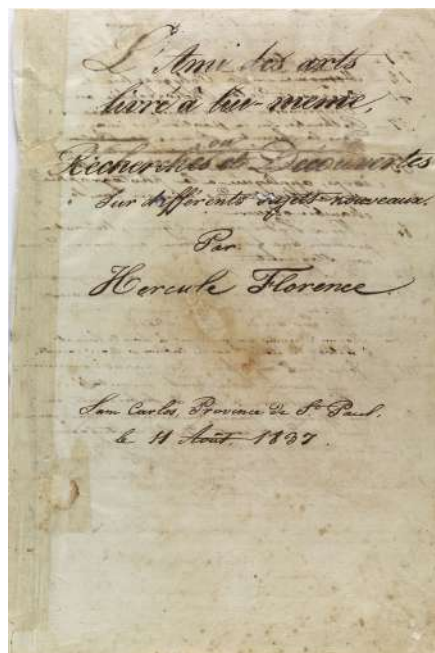 L'Ami des arts
livré à lui-meme,
ou
Recherches et Découvertes
sur différents sujets nouveaux.
Par
Hercule Florence
Sam Carlos, Province de St Paul.
le 11 Août 1837.